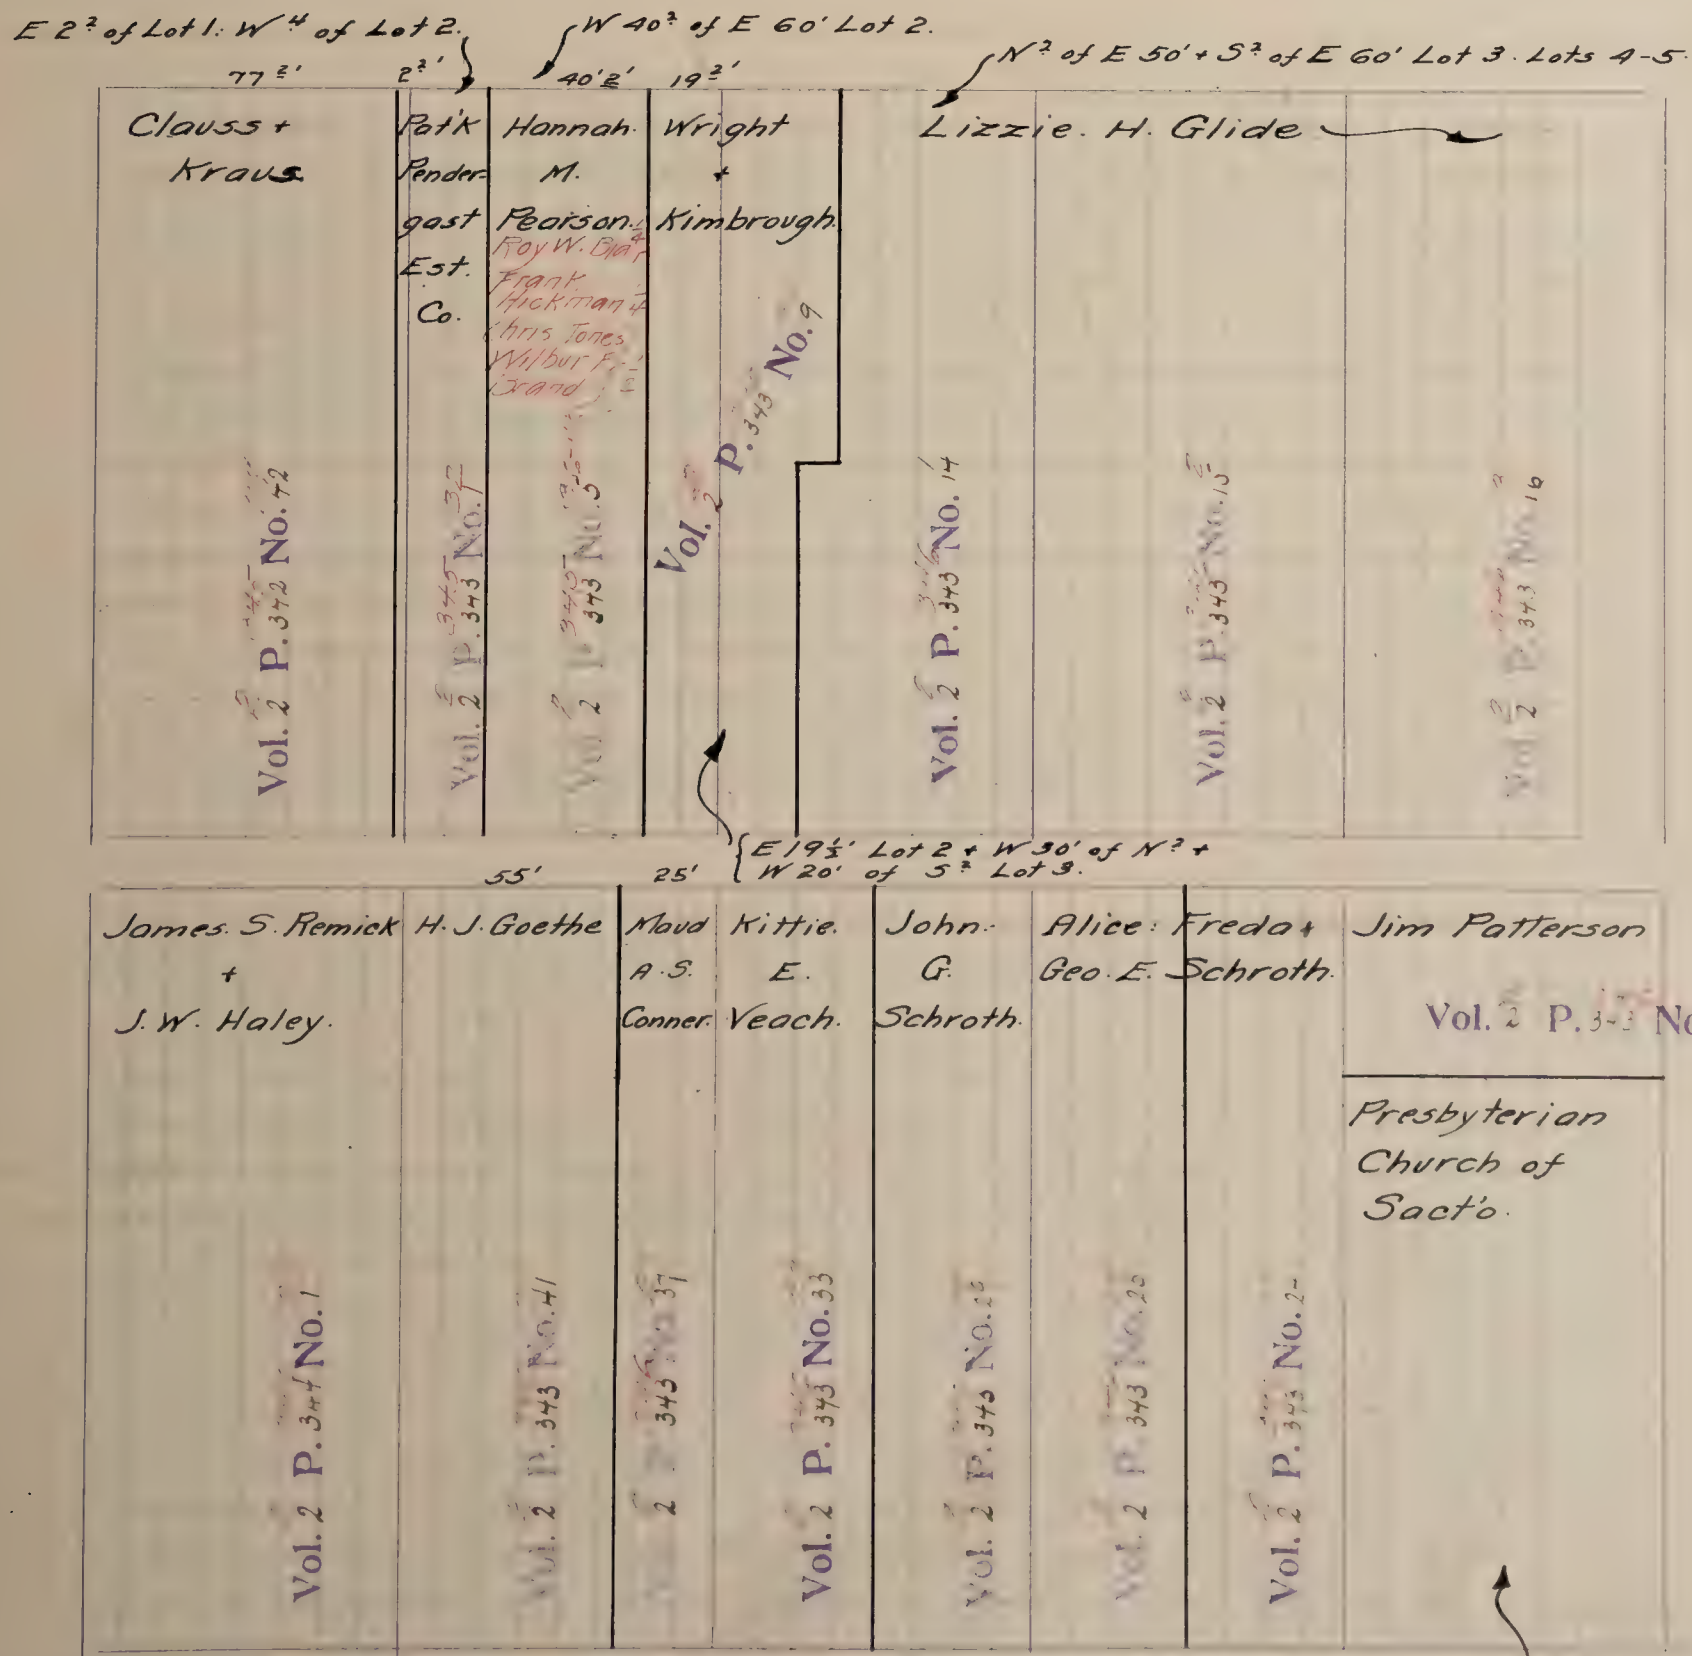 E 2² of Lot 1. W ⁴ of Lot 2.
W 40² of E 60' Lot 2.
N² of E 50' + S² of E 60' Lot 3. Lots 4-5.
77²'
2²'
40'2'
19²'
Clauss +
Kraus
Pat'k
Pender-
gast
Est.
Co.
Hannah.
M.
Pearson.
Roy W.
Frank
Hickman
Chris Jones
Wilbur F.
Brand
Wright
+
Kimbrough.
Lizzie. H. Glide
Vol. 2 P. 342 No. 42
Vol. 2 P. 343 No. 1
Vol. 2 P. 343 No. 5
Vol. 2 P. 343 No. 9
Vol. 2 P. 343 No. 14
Vol. 2 P. 343 No. 15
Vol. 2 P. 343 No. 16
E 19½' Lot 2 + W 30' of N² +
W 20' of S² Lot 3.
55'
25'
James. S. Remick
+
J. W. Haley.
H. J. Goethe
Maud
A. S.
Conner.
Kittie.
E.
Veach.
John.
G.
Schroth.
Alice: Freda +
Geo. E. Schroth.
Jim Patterson
Vol. 2 P. No
Presbyterian
Church of
Sact'o.
Vol. 2 P. 344 No. 1
Vol. 2 P. 343 No. 41
2 P. 343 No. 37
Vol. 2 P. 343 No. 33
Vol. 2 P. 343 No.
Vol. 2 P. 343 No.
Vol. 2 P. 343 No.